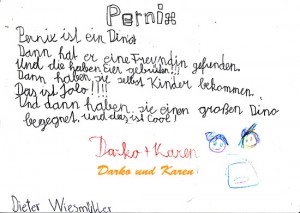 Pernix
Pernix ist ein Dino
Dann hat er eine Freundin gefunden.
Und die haben Eier gebrütet!!!
Dann haben sie selbst Kinder bekommen.
Das ist Jolo!!!!
Und dann haben sie einen großen Dino
begegnet. und das ist Cool!
Darko + Karen
Darko und Karen
Dieter Wiesmüller